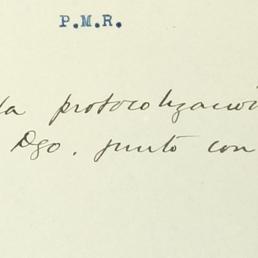 P.M.R.
la protocolización
Dgo. junto con